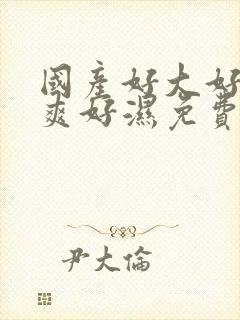 國産好大好
爽好濕免費
尹大倫